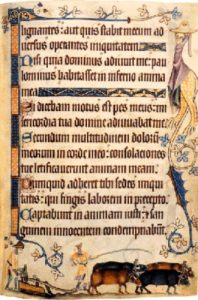 lignantes: aut quis stabit mecum ad
uersus operantes iniquitatem.
Nisi quia dominus adiuuit me: pau
lominus habitasset in inferno anima
mea.
Si dicebam motus est pes meus: mi
sericordia tua domine adiuuabat me.
Secundum multitudinem dolorum
meorum in corde meo: consolationes
tue letificauerunt animam meam.
Numquid adheret tibi sedes iniqui
tatis: qui fingis laborem in precepto.
Captabunt in animam iusti: et san
guinem innocentem condempnabunt.